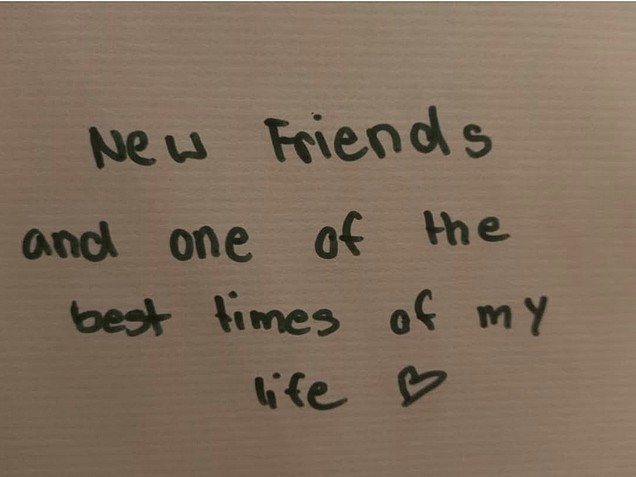 New Friends
and one of the
best times of my
life ♡